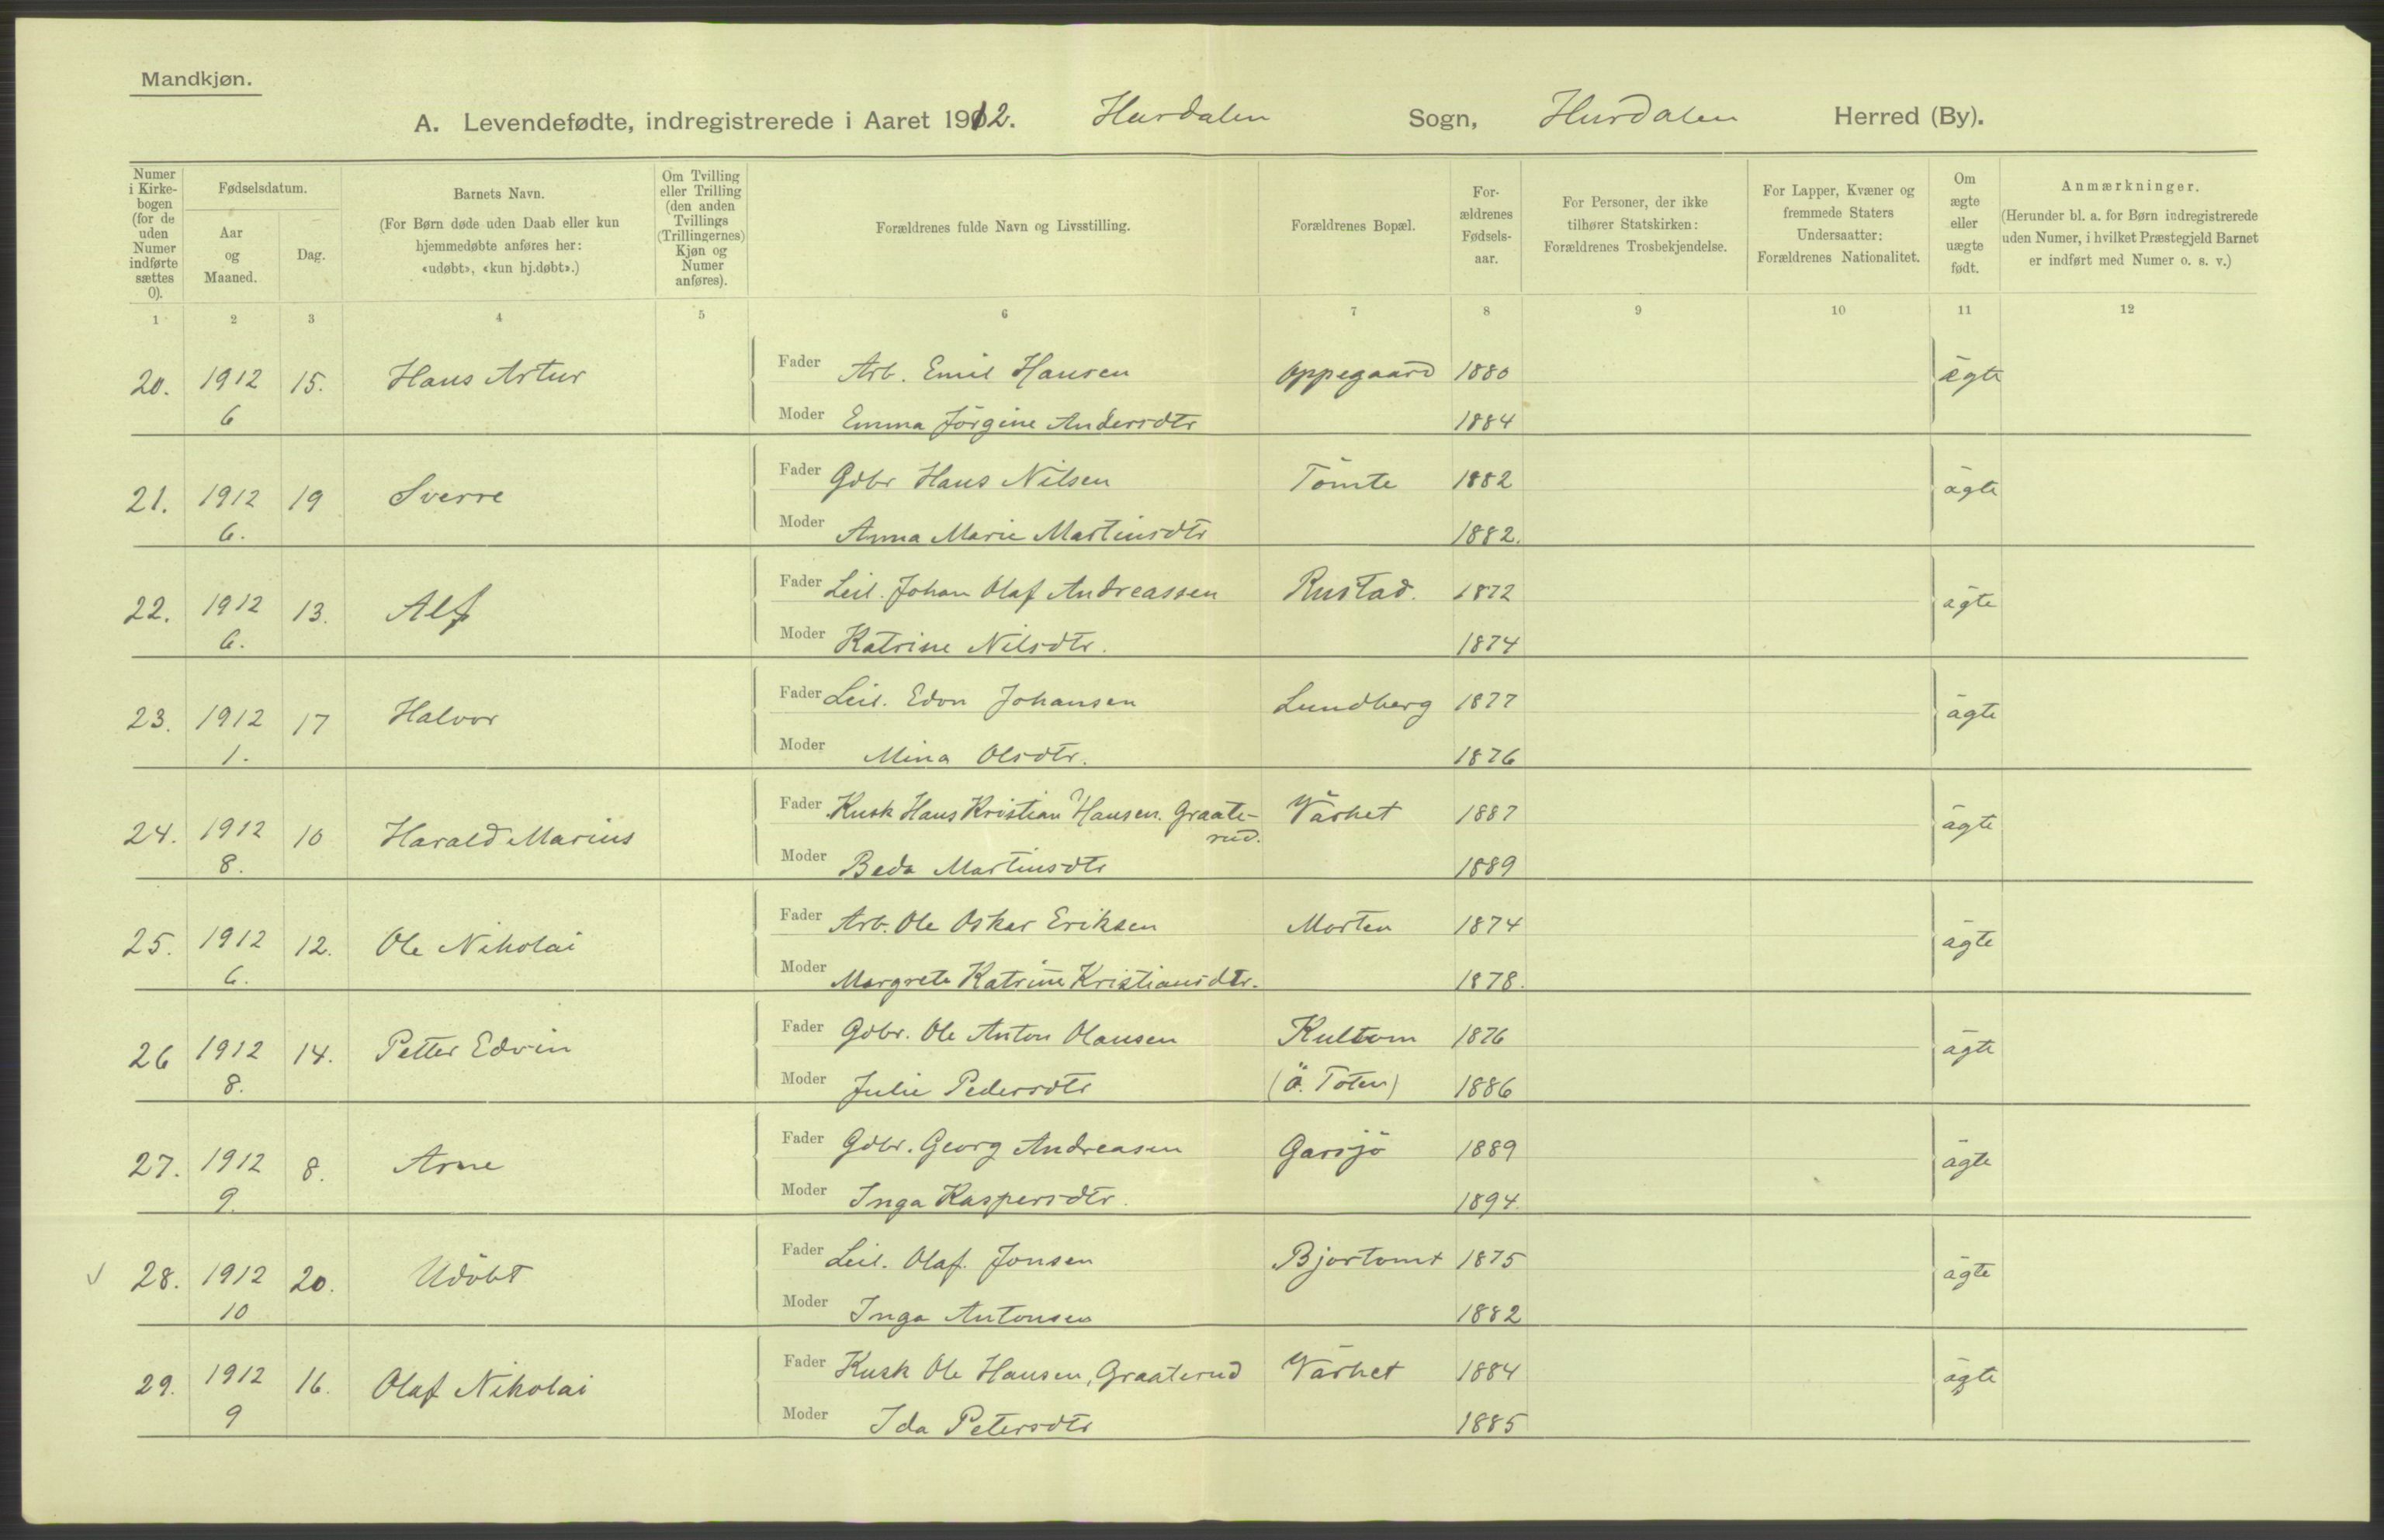 Mandkjøn.
A. Levendefødte, indregistrerede i Aaret 1912. Hurdalen Sogn, Hurdalen Herred (By).
Numer i Kirke-bogen (for de uden Numer indførte sættes 0).
Fødselsdatum.
Aar og Maaned.
Dag.
Barnets Navn.
(For Børn døde uden Daab eller kun hjemmedøbte anføres her: «udøbt», «kun hj.døbt».)
Om Tvilling eller Trilling (den anden Tvillings (Trillingernes) Kjøn og Numer anføres).
Forældrenes fulde Navn og Livsstilling.
Forældrenes Bopæl.
For-ældrenes Fødsels-aar.
For Personer, der ikke tilhører Statskirken: Forældrenes Trosbekjendelse.
For Lapper, Kvæner og fremmede Staters Undersaatter: Forældrenes Nationalitet.
Om ægte eller uægte født.
Anmærkninger.
(Herunder bl. a. for Børn indregistrerede uden Numer, i hvilket Præstegjeld Barnet er indført med Numer o. s. v.)
1 2 3 4 5 6 7 8 9 10 11 12
20. 1912 15. Hans Artur Fader Arb. Emil Hansen Oppegaard 1880 ägte
6 Moder Emma Jörgine Andersdtr 1884
21. 1912 19 Sverre Fader Gdbr Hans Nilsen Tömte 1882 ägte
6. Moder Anna Marie Martinsdtr 1882.
22. 1912 13. Alf Fader Leil. Johan Olaf Andreassen Rustad. 1872 ägte
6. Moder Katrine Nilsdtr. 1874
23. 1912 17 Halvor Fader Leil. Edvn Johansen Lundberg 1877 ägte
1. Moder Mina Olsdtr. 1876
24. 1912 10 Harald Marius Fader Kusk Hans Kristian Hansen. Graate- Värket 1887 ägte
rud.
8. Moder Beda Martinsdtr 1889
25. 1912 12. Ole Nikolai Fader Arb. Ole Oskar Eriksen Morten 1874 ägte
6. Moder Margrete Katrine Kristiansdtr. 1878.
26 1912 14. Petter Edvin Fader Gdbr. Ole Anton Olausen 1876 ägte
8. Moder Julie Pedersdtr (Ö. Toten) 1886
27. 1912 8. Arne Fader Gdbr. Georg Andreasen Garsjö 1889 ägte
9. Moder Inga Kaspersdtr. 1894.
28. 1912 20. Udöbt Fader Leil. Olaf Jonsen Bjortomt 1875 ägte
10 Moder Inga Antonsen 1882
29. 1912 16. Olaf Nikolai Fader Kusk Ole Hansen, Graaterud Värket 1884 ägte
9 Moder Ida Petersdtr 1885